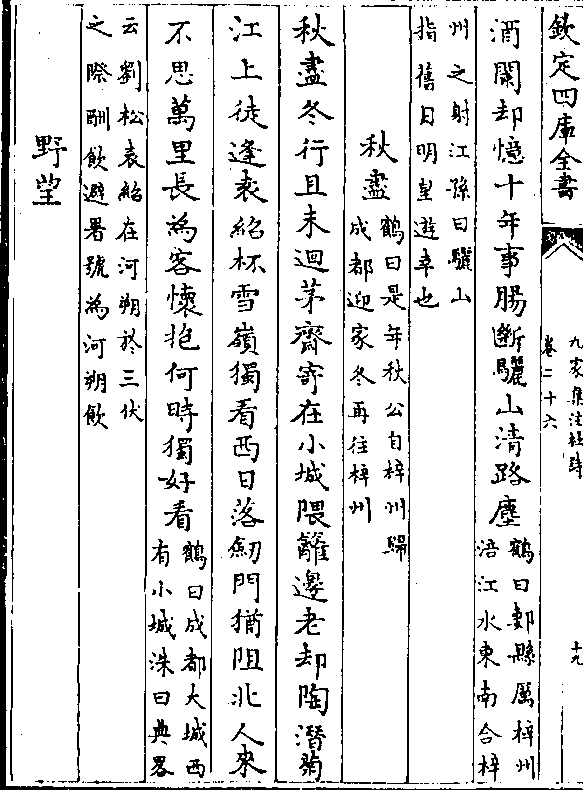 欽定四庫全書
九家集注杜詩
卷二十六
十九
酒闌却憶十年事腸斷驪山清路塵
鶴曰郪縣屬梓州
涪江水東南合梓
州之射江孫曰驪山
指舊日明皇遊幸也
秋盡
鶴曰是年秋公自梓州歸
成都迎家冬再往梓州
秋盡冬行且未迴茅齋寄在小城隈籬邊老却陶潛菊
江上徒逢袁紹杯雪嶺獨看西日落劒門猶阻北人來
不思萬里長為客懷抱何時獨好看
鶴曰成都大城西
有小城洙曰典畧
云劉松袁紹在河朔於三伏
之際酣飲避暑號為河朔飲
野望